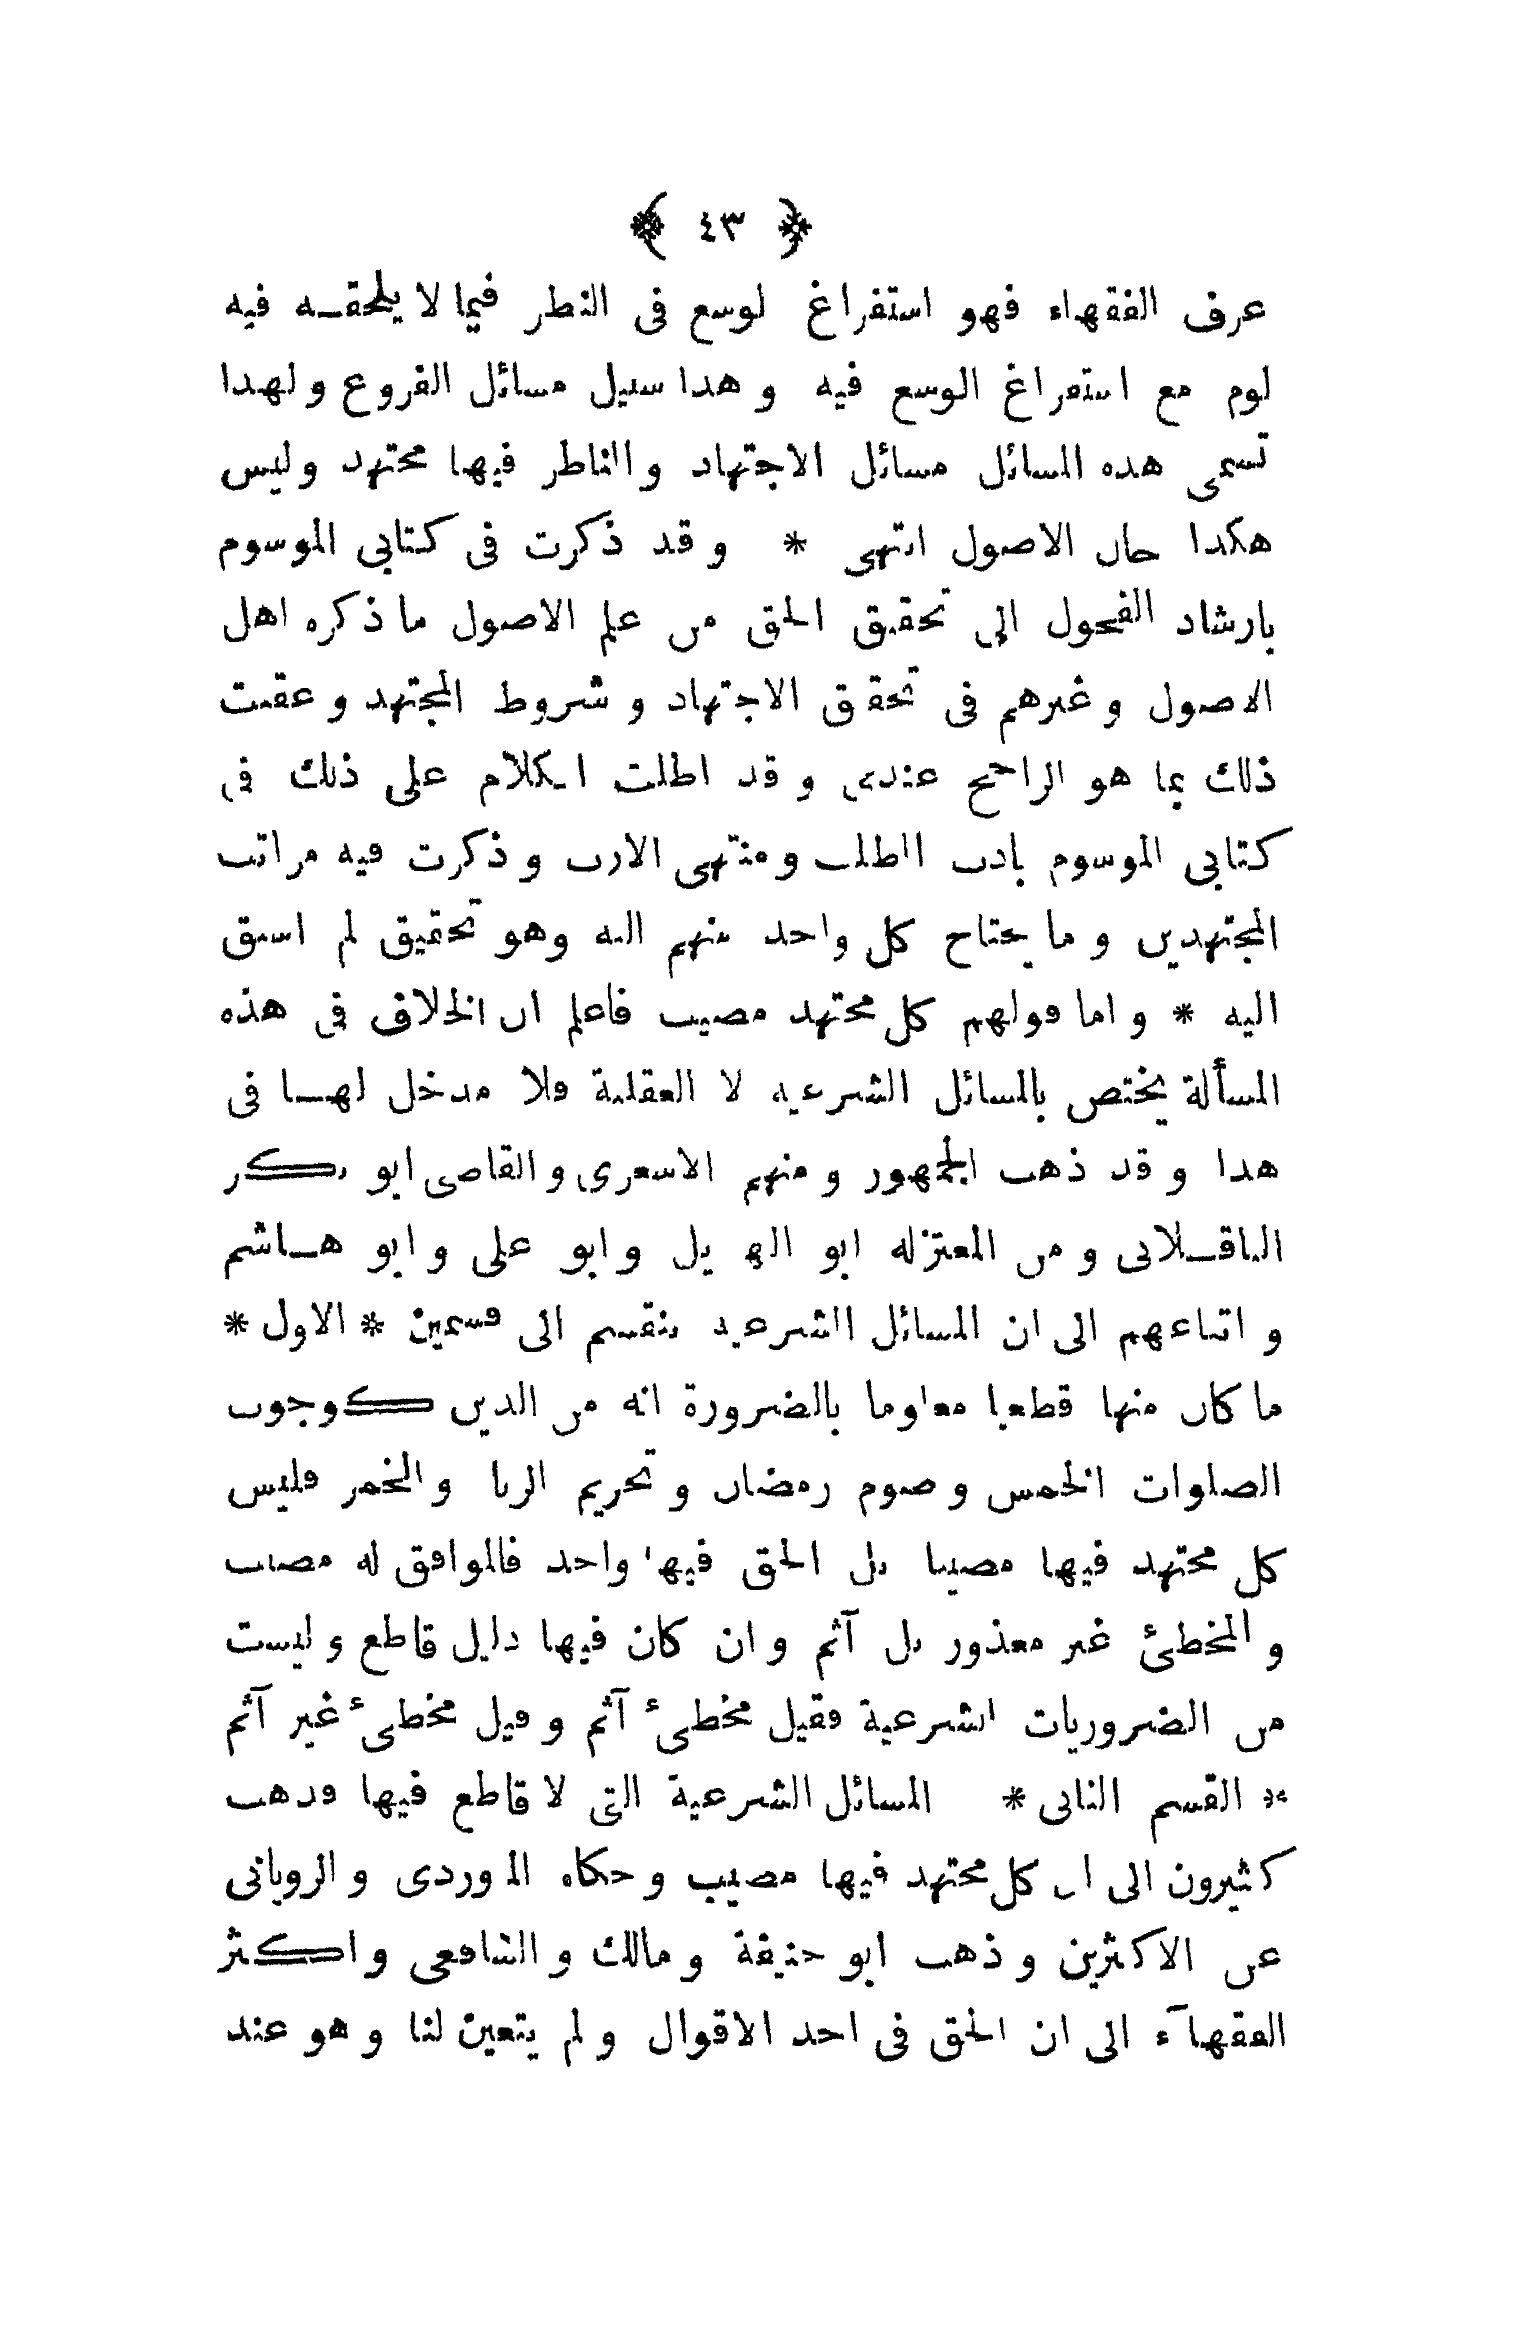 ﴿ ٤٣ ﴾
عرف الفقهاء فهو استفراغ لوسع فى النظر فيما لا يلحقه فيه
لوم مع استفراغ الوسع فيه وهذا سبيل مسائل الفروع ولهذا
تسمى هذه المسائل مسائل الاجتهاد والناظر فيها مجتهد وليس
هكذا حال الاصول انتهى * وقد ذكرت فى كتابى الموسوم
بارشاد الفحول الى تحقيق الحق من علم الاصول ما ذكره اهل
الاصول وغيرهم فى تحقق الاجتهاد وشروط المجتهد وعقبت
ذلك بما هو الراجح عندى وقد اطلت الكلام على ذلك فى
كتابى الموسوم بادب الطلب ومنتهى الارب وذكرت فيه مراتب
المجتهدين وما يحتاج كل واحد منهم اليه وهو تحقيق لم اسبق
اليه * واما قولهم كل مجتهد مصيب فاعلم ان الخلاف فى هذه
المسألة يختص بالمسائل الشرعيه لا العقلية فلا مدخل لها فى
هذا وقد ذهب الجمهور ومنهم الاشعرى والقاضى ابو بكر
الباقلانى ومن المعتزله ابو الهذيل وابو على وابو هاشم
واتباعهم الى ان المسائل الشرعيه تنقسم الى قسمين * الاول *
ما كان منها قطعيا معلوما بالضرورة انه من الدين كوجوب
الصلوات الخمس وصوم رمضان وتحريم الربا والخمر فليس
كل مجتهد فيها مصيبا بل الحق فيها واحد فالموافق له مصيب
والمخطئ غير معذور بل آثم وان كان فيها دليل قاطع وليست
من الضروريات الشرعية فقيل مخطئ آثم وقيل مخطئ غير آثم
* القسم الثانى * المسائل الشرعية التى لا قاطع فيها فذهب
كثيرون الى ان كل مجتهد فيها مصيب وحكاه الماوردى والرويانى
عن الاكثرين وذهب ابو حنيفة ومالك والشافعى واكثر
الفقهآء الى ان الحق فى احد الاقوال ولم يتعين لنا وهو عند